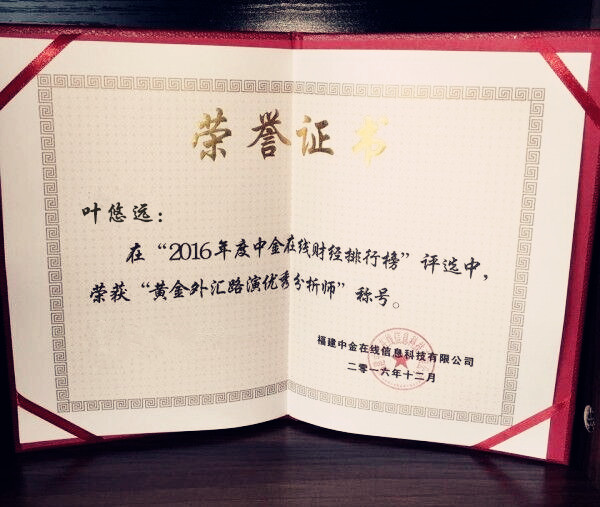 荣誉证书
叶悠远：
在“2016年度中金在线财经排行榜”评选中，
荣获“黄金外汇路演优秀分析师”称号。
福建中金在线信息科技有限公司
二零一六年十二月